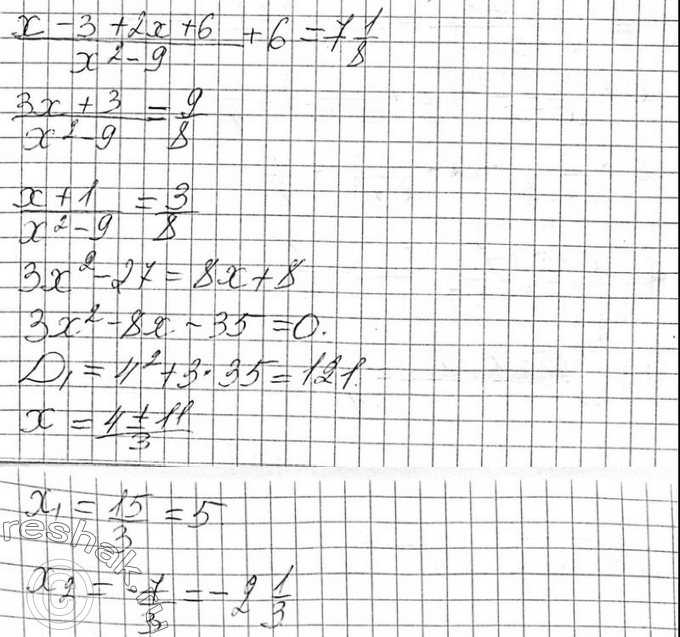 (x - 3 + 2x + 6)/(x² - 9) + 6 = 7 1/8
(3x + 3)/(x² - 9) = 9/8
(x + 1)/(x² - 9) = 3/8
3x² - 27 = 8x + 8
3x² - 8x - 35 = 0.
D₁ = 4² + 3 · 35 = 121.
x = (4 ± 11)/3
x₁ = 15/3 = 5
x₂ = -7/3 = -2 1/3
reshak.ru